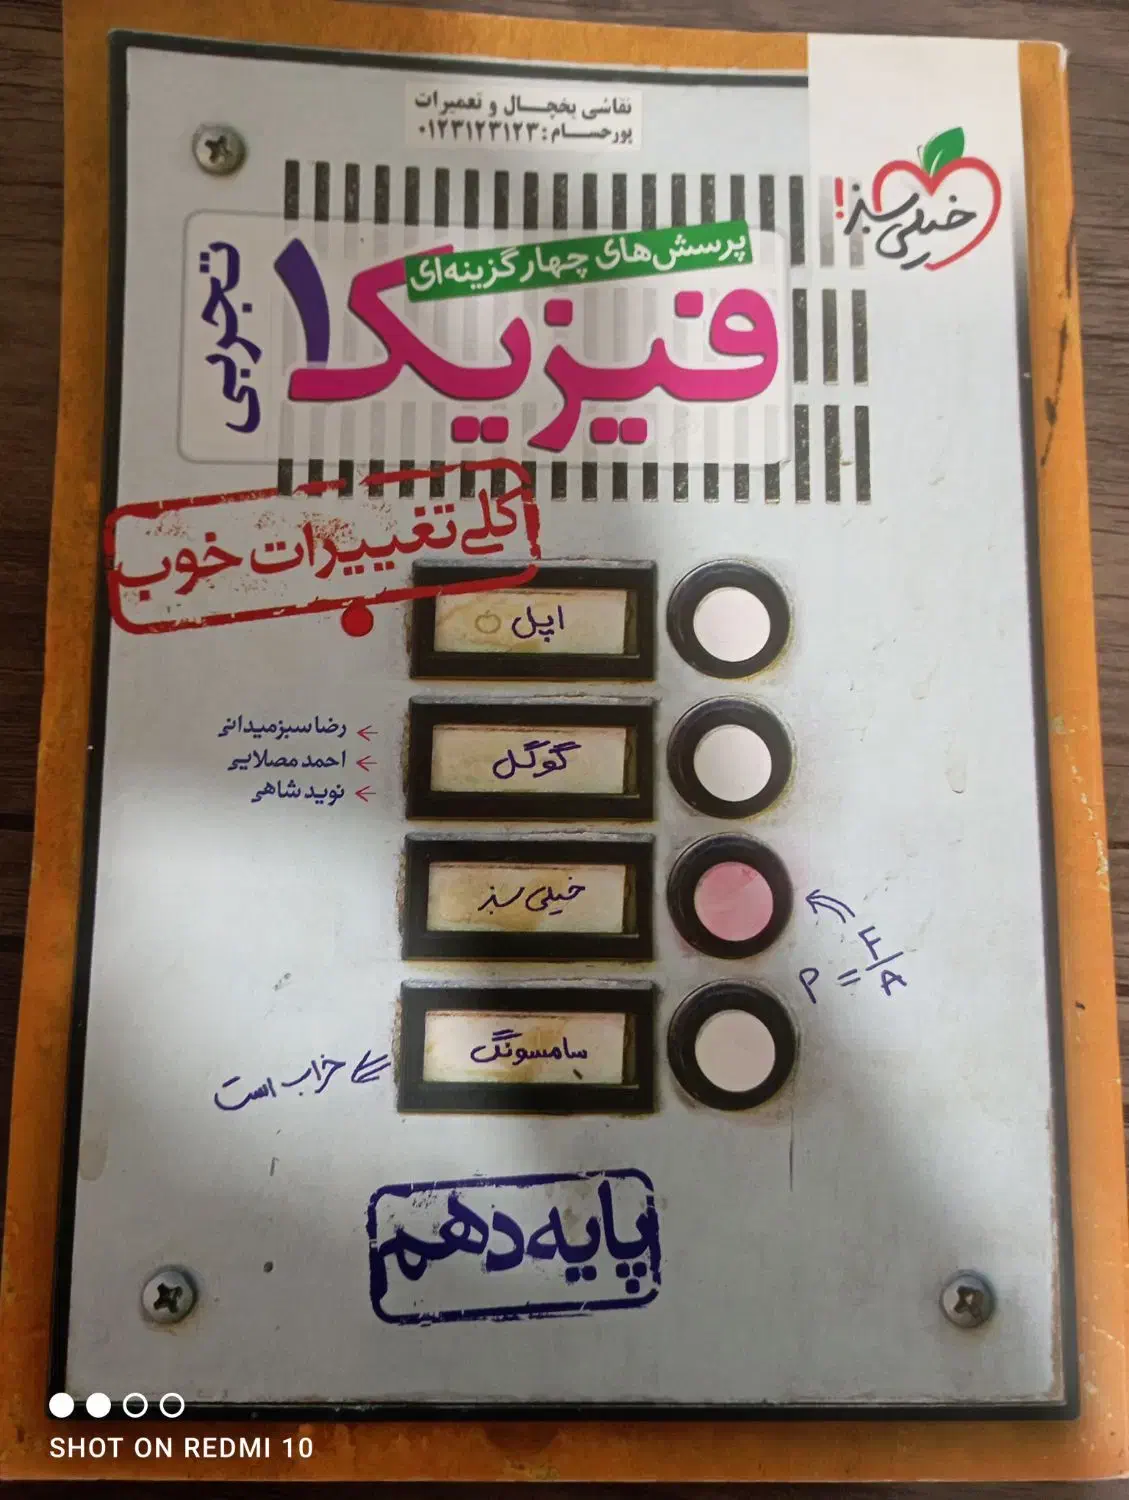 نقاشی یخچال و تعمیرات
پورحسام: ۰۱۲۳۱۲۳۱۲۳
خیلی سبز!
پرسش‌های چهارگزینه‌ای
فیزیک ۱
تجربی
کلی تغییرات خوب
اپل
رضا سبزمیدانی
احمد مصلایی
نوید شاهی
گوگل
خیلی سبز
P = F/A
سامسونگ
خراب است
پایه دهم
SHOT ON REDMI 10